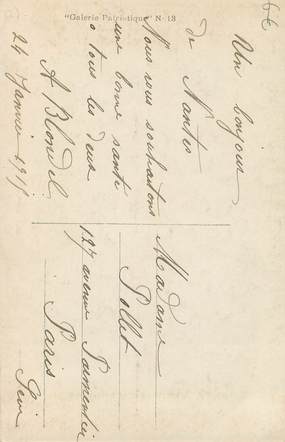 "Galerie Patriotique" N° 13
Un bonjour
de Nantes
Nous vous souhaitons
une bonne santé
a tous les deux
A Blondel
24 Janvier 1915
Madame
Pollet
127 avenue Parmentier
Paris
Seine